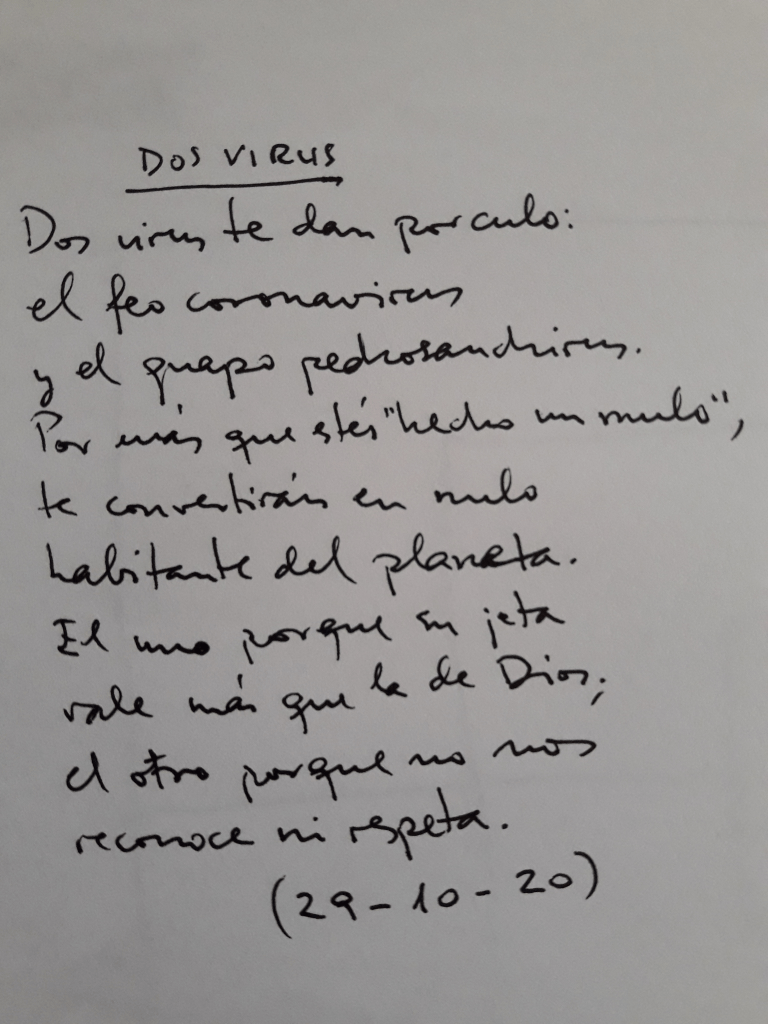 DOS VIRUS
Dos virus te dan por culo:
el feo coronavirus
y el guapo pedrosanchirus.
Por más que estés "hecho un mulo",
te convertirán en nulo
habitante del planeta.
El uno porque su jeta
vale más que la de Dios;
el otro porque no nos
reconoce ni respeta.
(29-10-20)